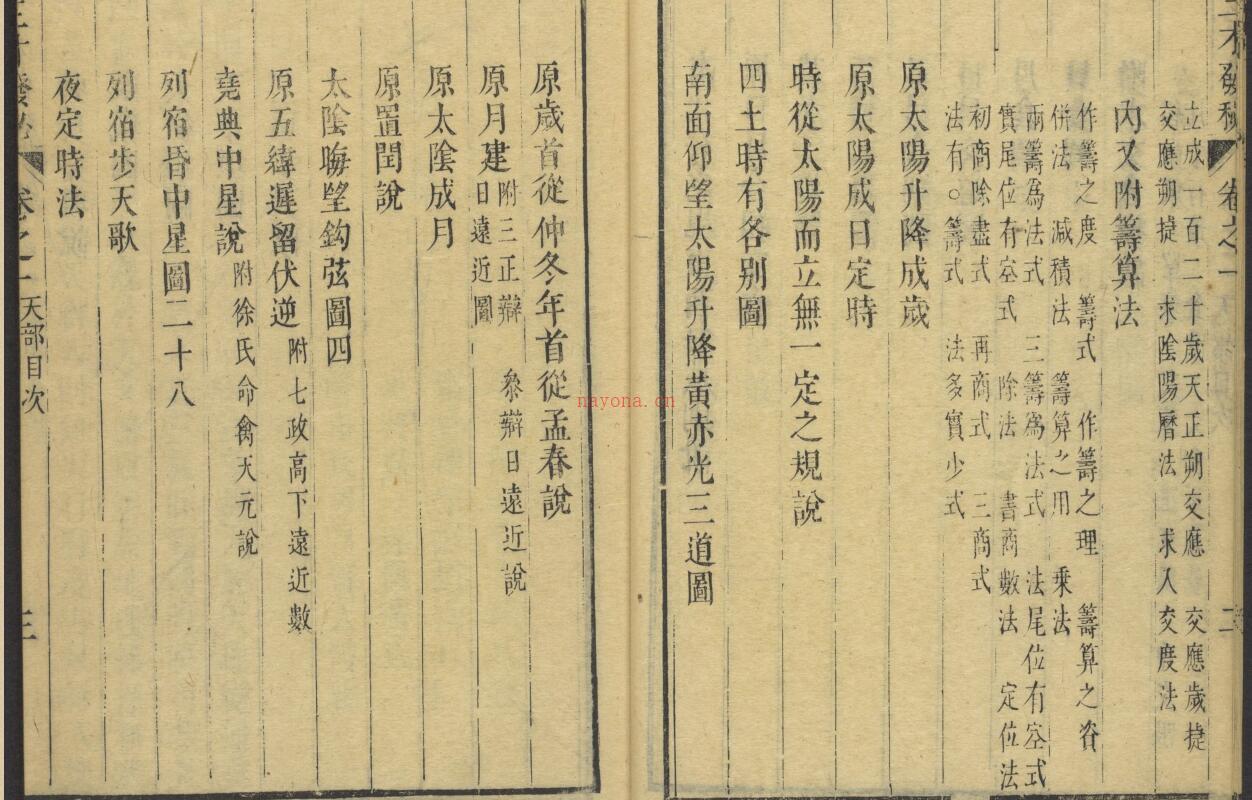 三才發秘 卷之一 二
立成一百二十歲天正朔交應 交應歲捷
交應朔捷 求陰陽曆法 求入交度法
內又附籌算法
作籌之度 籌式 作籌之理 籌算之資
併法 減積法 籌算之用 乘法
兩籌爲法式 三籌爲法式 法尾位有空式
實尾位有空式 除法 書商數法 定位法
初商除盡式 再商式 三商式
法有○籌式 法多實少式
原太陽升降成歲
原太陽成日定時
時從太陽而立無一定之規說
四土時有各別圖
南面仰望太陽升降黃赤光三道圖
原歲首從仲冬年首從孟春說
原月建 附三正辯 叅辯日遠近說
日遠近圖
原太陰成月
原置閏說
太陰晦望鈎弦圖四
原五緯遲留伏逆 附七政高下遠近數
堯典中星說 附徐氏命禽天元說
列宿昏中星圖二十八
列宿步天歌
夜定時法
卷之一 天部目次 三
nayona.cn